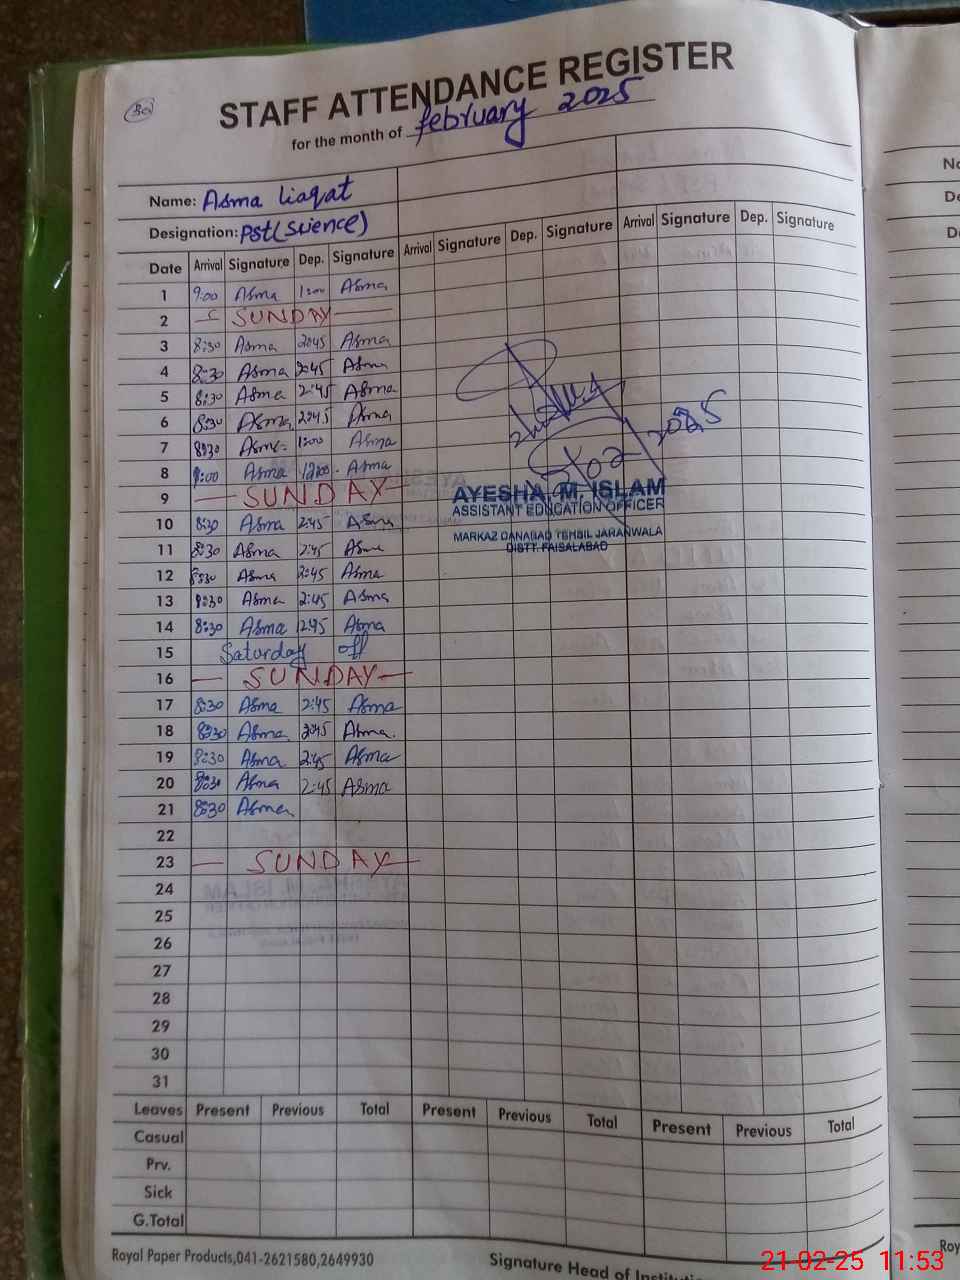 STAFF ATTENDANCE REGISTER
for the month of february 2025
Name: Asma liaqat
Designation: PST (science)
Date Arrival Signature Dep. Signature Arrival Signature Dep. Signature Arrival Signature Dep. Signature
1 9:00 Asma 1:00 Asma
2 SUNDAY
3 8:30 Asma 2:45 Asma
4 8:30 Asma 2:45 Asma
5 8:30 Asma 2:45 Asma
6 8:30 Asma 2:45 Asma
7 8:30 Asma 1:00 Asma
8 9:00 Asma 12:00 Asma
9 SUNDAY
10 8:30 Asma 2:45 Asma
11 8:30 Asma 2:45 Asma
12 8:30 Asma 2:45 Asma
13 8:30 Asma 2:45 Asma
14 8:30 Asma 12:45 Asma
15 Saturday off
16 SUNDAY
17 8:30 Asma 2:45 Asma
18 8:30 Asma 2:45 Asma
19 8:30 Asma 2:45 Asma
20 8:30 Asma 2:45 Asma
21 8:30 Asma
22
23 SUNDAY
24
25
26
27
28
29
30
31
2025
AYESHA, M. ISLAM
ASSISTANT EDUCATION OFFICER
MARKAZ DANABAD TEHSIL JARANWALA
DISTT. FAISALABAD
Leaves Present Previous Total Present Previous Total Present Previous Total
Casual
Prv.
Sick
G.Total
Royal Paper Products,041-2621580,2649930
Signature Head of Instituti
21-02-25 11:53